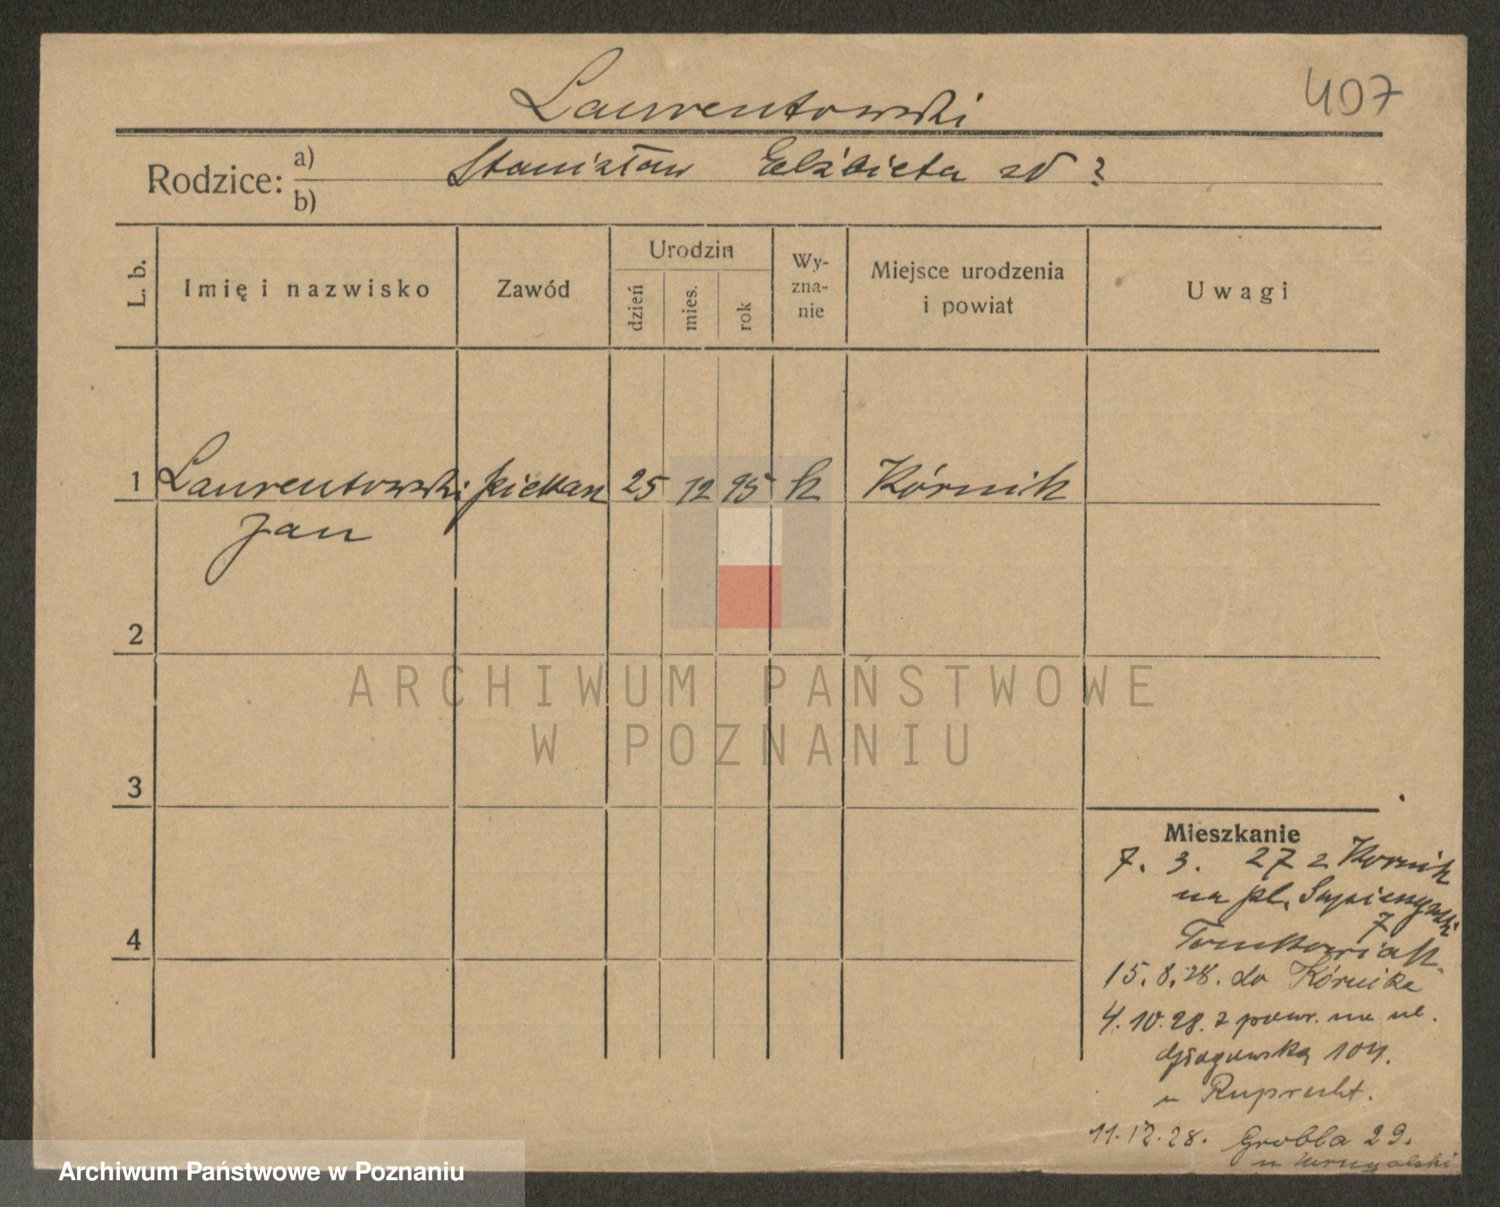 407
Laurentowski
Rodzice: a) Stanisław Elżbieta zd ?
b)
L. b. Imię i nazwisko Zawód Urodzin dzień mies. rok Wy- zna- nie Miejsce urodzenia i powiat Uwagi
1 Laurentowski piekarz 25 12 95 k Kórnik
Jan
2
3
4
ARCHIWUM PAŃSTWOWE
W POZNANIU
Mieszkanie
7. 3. 27 z Kornik
na pl. Sapieżyński
7
15.8.28. do Kórnika
4.10.28. z powr. na ul.
Głogowską 104.
u Ruprecht.
11.12.28. Grobla 29.
u
Archiwum Państwowe w Poznaniu